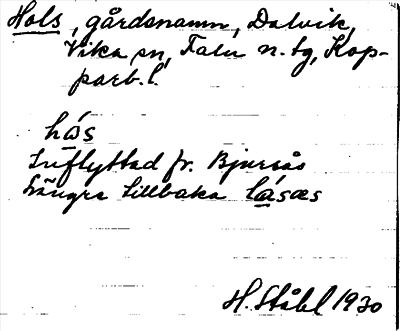 Hols, gårdsnamn, Dalvik,
Vika sn, Falu n. tg, Kop-
parb. l.
hås
Inflyttad fr. Bjursås
längre tillbaka låsæs
H. Ståhl 1930